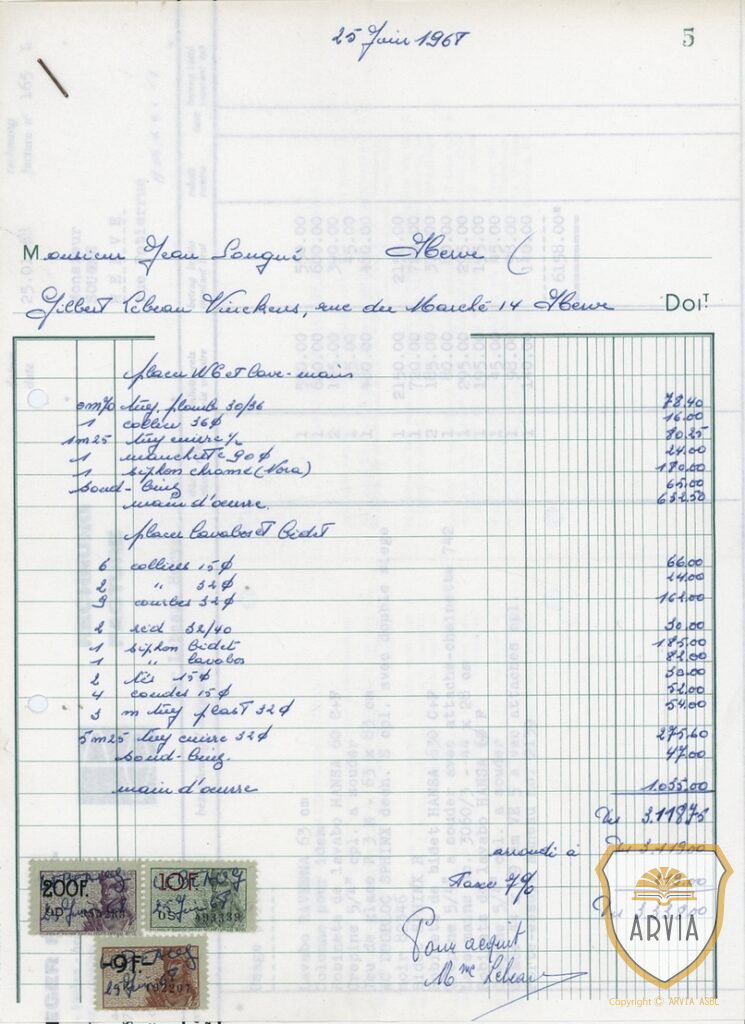 25 Juin 1968
5
Monsieur Jean Herve
Gilbert Lebeau Vinckens, rue du Marché 14 Herve DOIT
placer WC et lave-mains
0m70 tuy. plomb 30/36 78.40
1 collier 36⌀ 16.00
1m25 tuy cuivre 80.25
1 manchette 90⌀ 24.00
1 siphon chromé (Nora) 180.00
soud- 65.00
main d'oeuvre. 632.50
placer lavabos et bidet
6 colliers 15⌀ 66.00
2 " 32⌀ 24.00
9 courbes 32⌀ 162.00
2 32/40 30.00
1 siphon bidet 185.00
1 " lavabos 82.00
2 tés 15⌀ 30.00
4 coudes 15⌀ 52.00
3 m tuy plast 32⌀ 54.00
5m25 tuy cuivre 32⌀ 275.60
soud- 47.00
main d'oeuvre 1.035.00
3.118.75
arrondi à 3.119.00
Taxe 7%
Pour acquit
Mme Lebeau
200F. 10F
9F.
ARVIA
Copyright © ARVIA ASBL